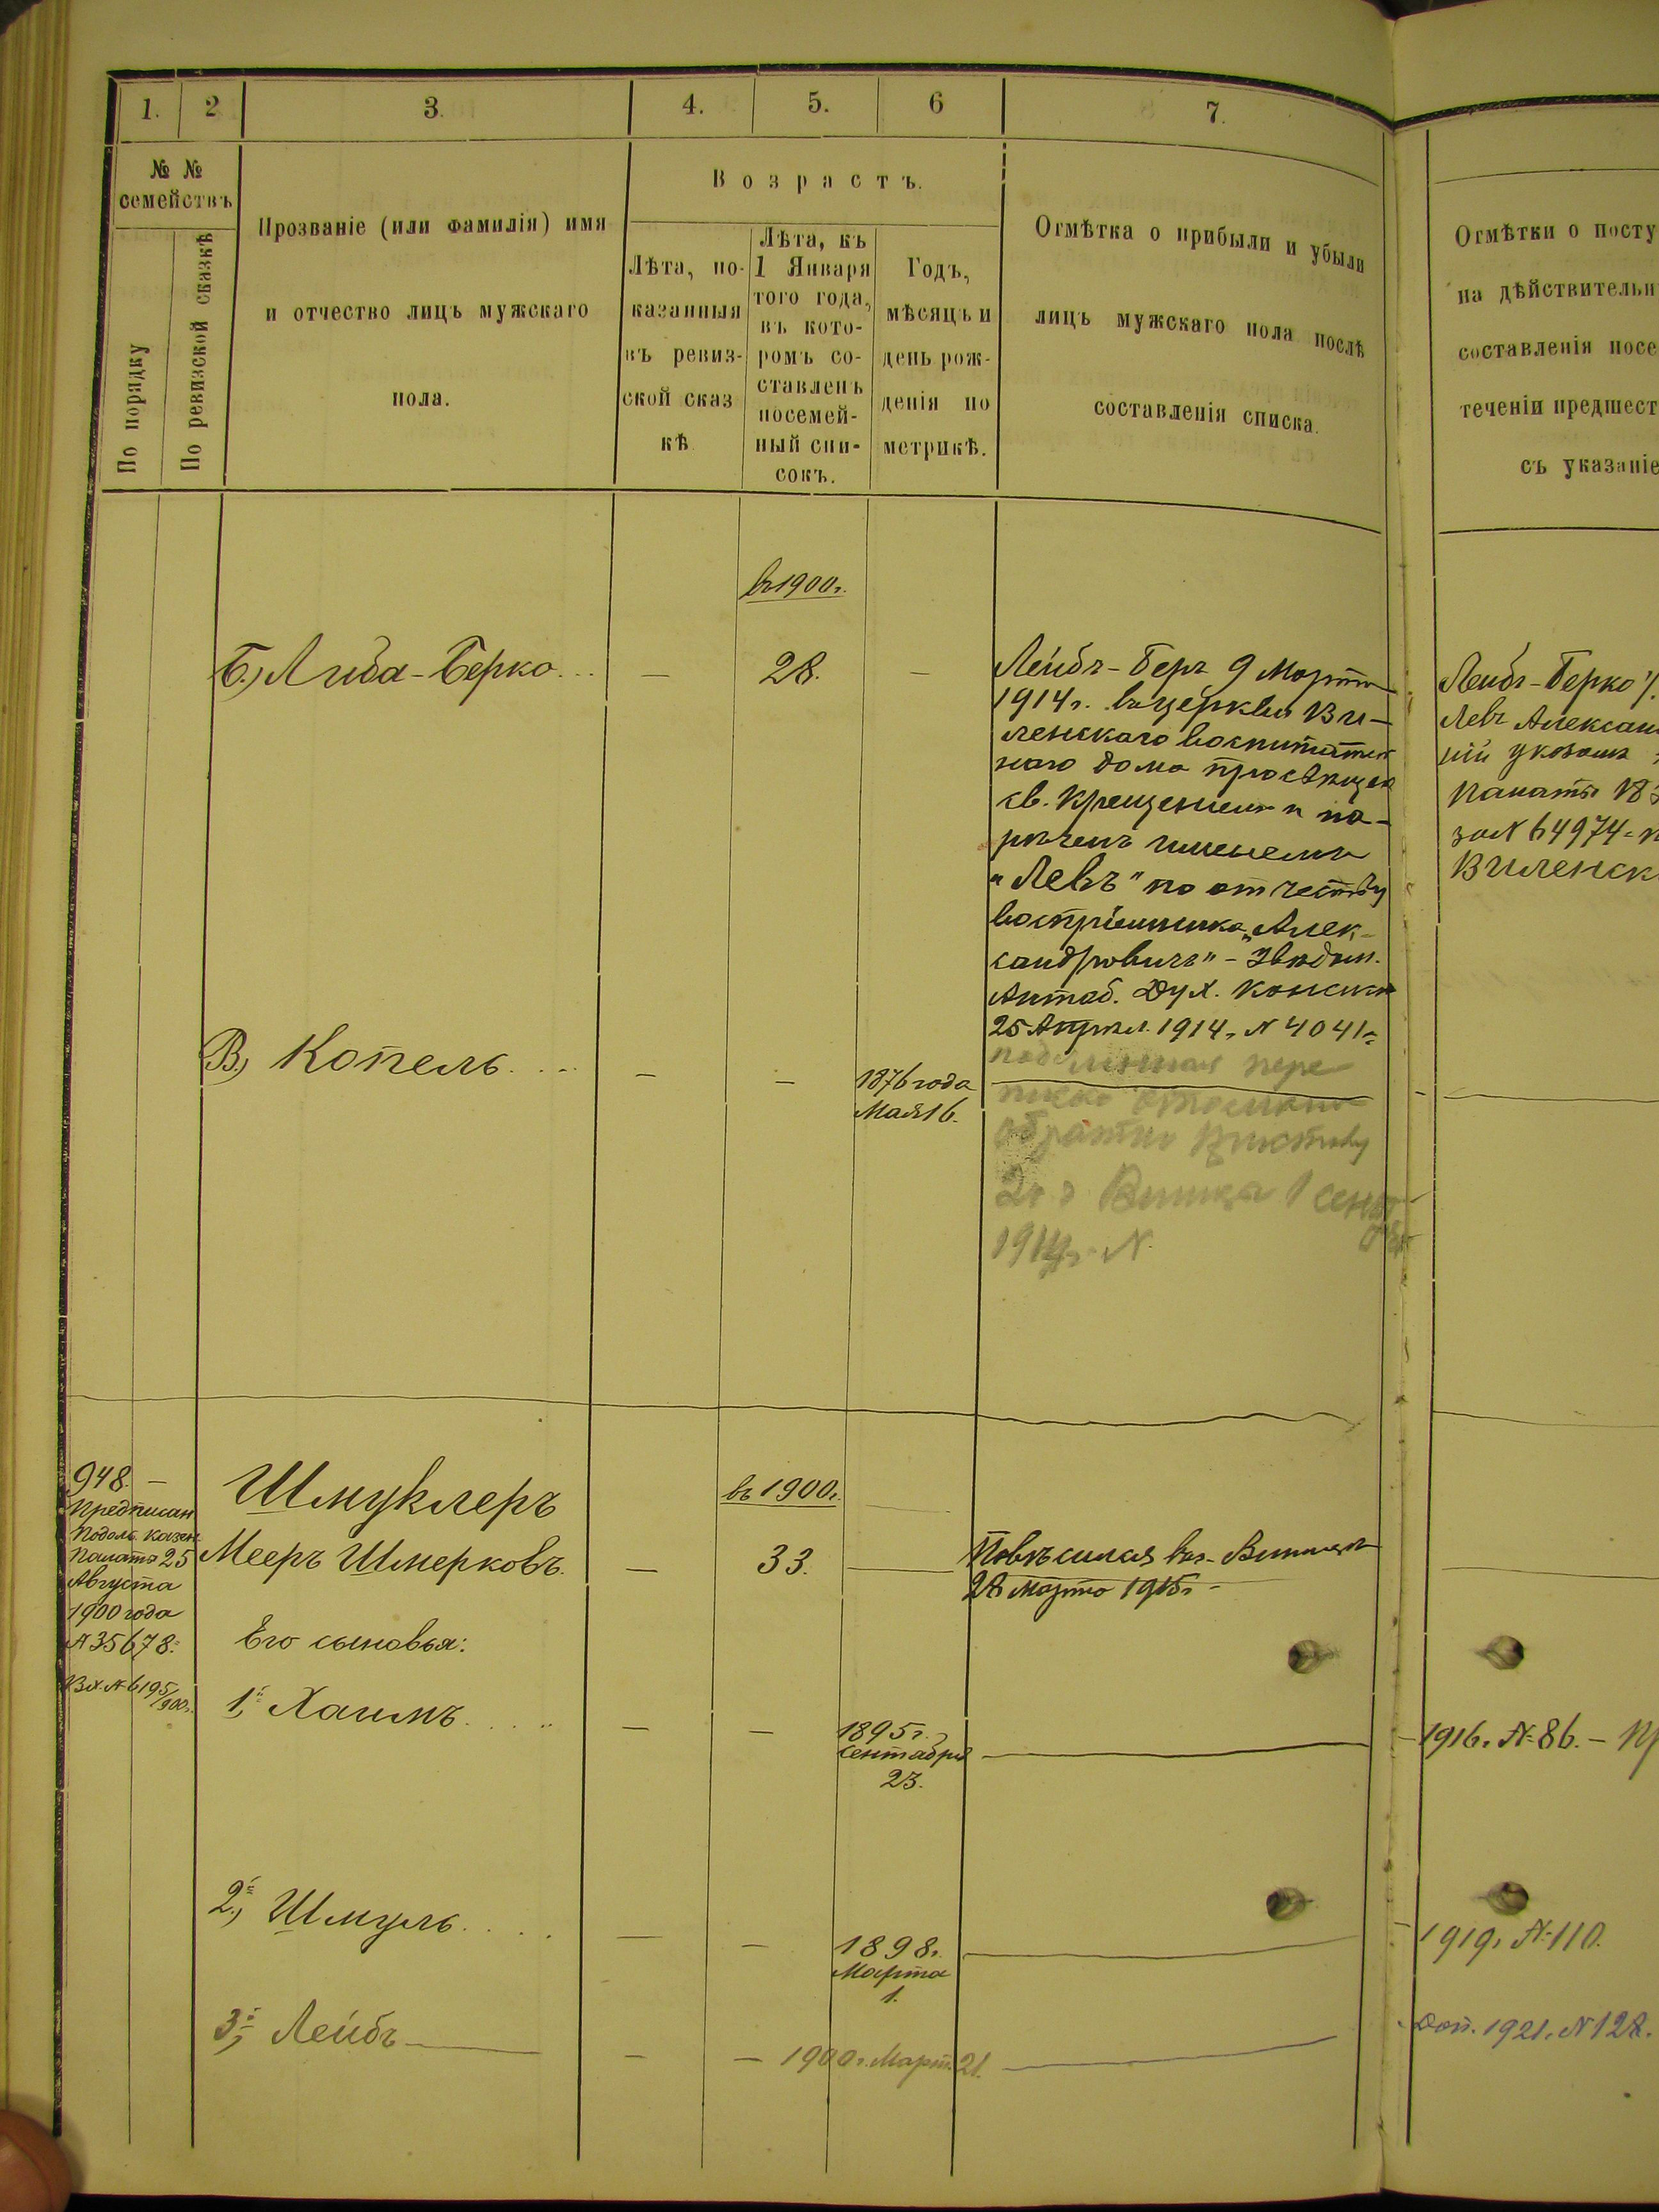 1.
2
3.
4.
5.
6
7.
№ №
семействъ
По порядку
По ревизской сказкѣ
Прозваніе (или фамилія) имя
и отчество лицъ мужскаго
пола.
Возрастъ.
Лѣта, по-
казанныя
въ ревиз-
ской сказ
кѣ
Лѣта, къ
1 Января
того года,
въ кото-
ромъ со-
ставленъ
посемей-
ный спи-
сокъ.
Годъ,
мѣсяцъ и
день рож-
денія по
метрикѣ.
Отмѣтка о прибыли и убыли
лицъ мужскаго пола послѣ
составленія списка.
Отмѣтки о посту
на дѣйствительн
составленія посе
теченіи предшест
съ указаніе
въ 1900г.
Б.) Либа-Берко...
—
28.
—
Лейбъ-Беръ 9 Марта
1914г. въ церкви Ви-
ленскаго воспитател
наго дома просвѣщен
св. Крещеніемъ и на-
рѣченъ именемъ
"Левъ" по отчеству
воспріемника "Алек-
сандровичъ" -
Дух. Консист
25 Апрѣл. 1914г. N 4041
пере
обратно Приставу
2го Винница 1 сент
1914г. N.
Лейбъ-Берко
Левъ Алексан
ній указомъ
Палаты 183
за N 64974 = п
Виленск
В.) Копель....
—
—
1876 года
Мая 16.
948. —
Предписан
Подоль. Казен
Палаты 25
Августа
1900 года
N 35678.
Вх. N 6195/900г.
Шмуклеръ
въ 1900г.
Мееръ Шмерковъ.
—
33.
Повѣсился въ г. Винницѣ
28 марта 1915г. -
Его сыновья:
1й, Хаимъ....
—
—
1895г.
Сентября
23.
1916г. N 86. - Пр
2й, Шмуль....
—
—
1898г.
Марта
1.
1919г. N 110.
3й, Лейбъ
—
—
1900г. Март. 21.
Доп. 1921г. N 128.